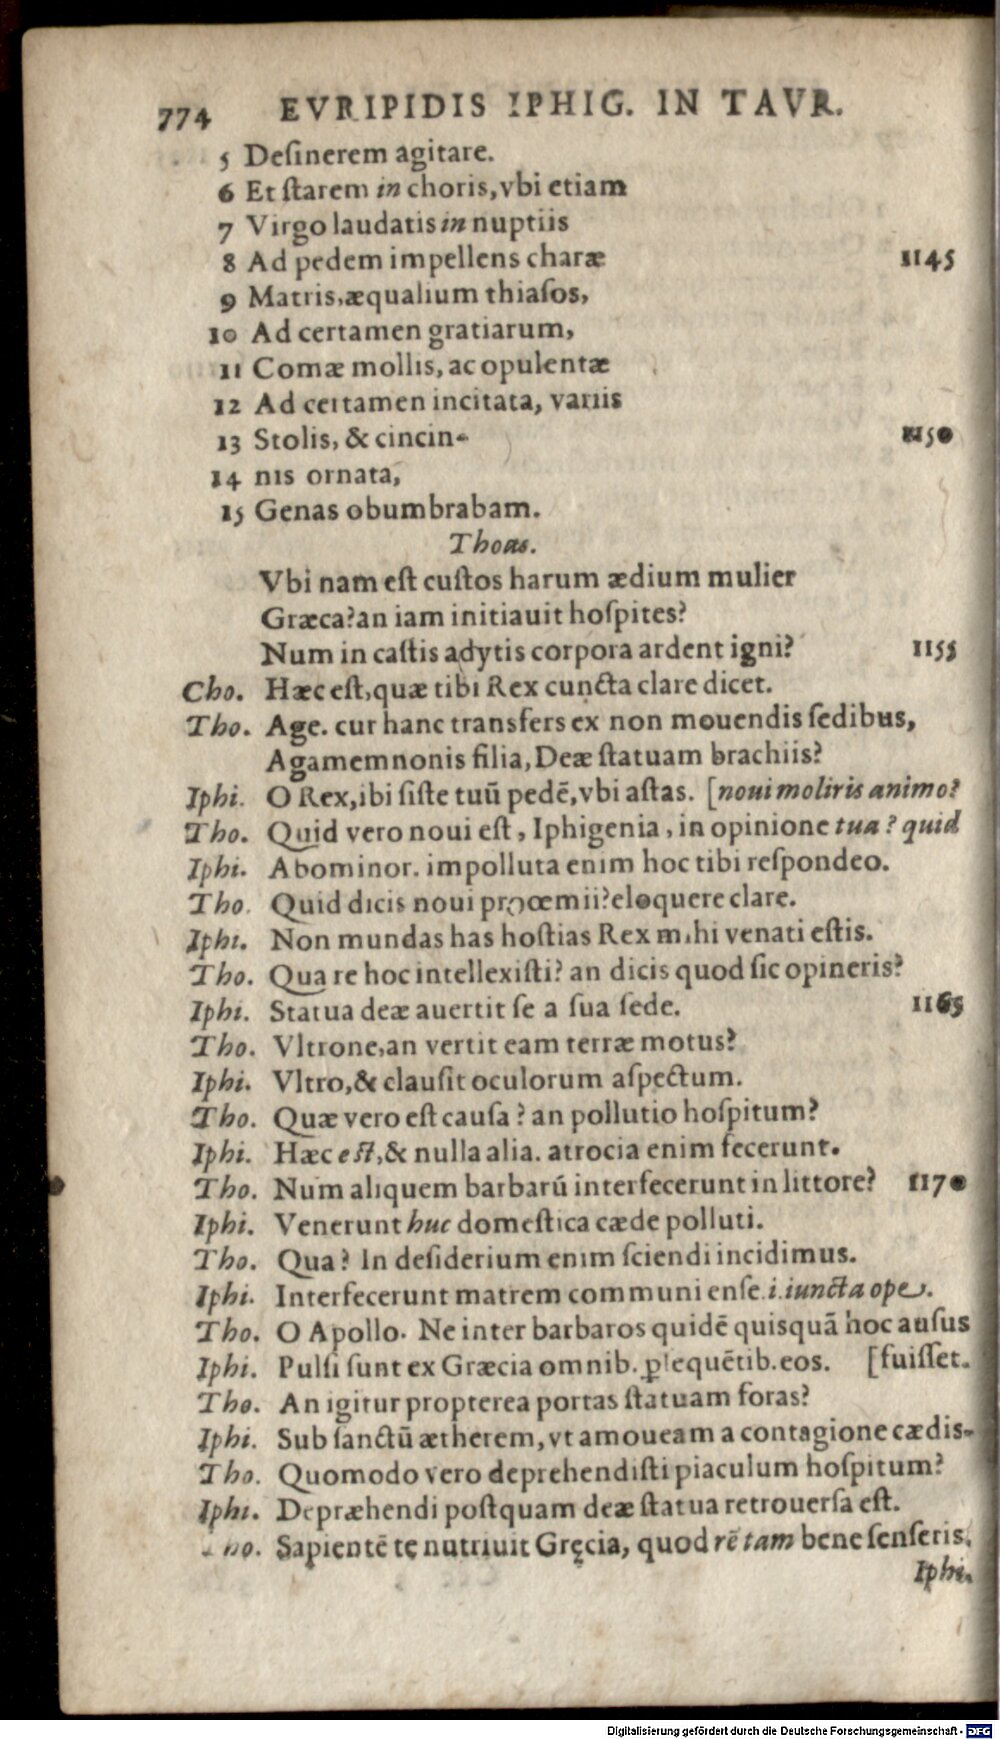 774 EVRIPIDIS IPHIG. IN TAVR.
5 Deſinerem agitare.
6 Et ſtarem in choris, vbi etiam
7 Virgo laudatis in nuptiis
8 Ad pedem impellens charæ 1145
9 Matris, æqualium thiaſos,
10 Ad certamen gratiarum,
11 Comæ mollis, ac opulentæ
12 Ad certamen incitata, variis
13 Stolis, & cincin- 1150
14 nis ornata,
15 Genas obumbrabam.
Thoas.
Vbi nam eſt cuſtos harum ædium mulier
Græca? an iam initiauit hoſpites?
Num in caſtis adytis corpora ardent igni? 1155
Cho. Hæc eſt, quæ tibi Rex cuncta clare dicet.
Tho. Age. cur hanc transfers ex non mouendis ſedibus,
Agamemnonis filia, Deæ ſtatuam brachiis?
Iphi. O Rex, ibi ſiſte tuū pedē, vbi aſtas. [noui moliris animo?
Tho. Quid vero noui eſt, Iphigenia, in opinione tua? quid
Iphi. Abominor. impolluta enim hoc tibi reſpondeo.
Tho. Quid dicis noui proœmii? eloquere clare.
Iphi. Non mundas has hoſtias Rex mihi venati eſtis.
Tho. Qua re hoc intellexiſti? an dicis quod ſic opineris?
Iphi. Statua deæ auertit ſe a ſua ſede. 1165
Tho. Vltrone, an vertit eam terræ motus?
Iphi. Vltro, & clauſit oculorum aſpectum.
Tho. Quæ vero eſt cauſa? an pollutio hoſpitum?
Iphi. Hæc eſt, & nulla alia. atrocia enim fecerunt.
Tho. Num aliquem barbarū interfecerunt in littore? 1170
Iphi. Venerunt huc domeſtica cæde polluti.
Tho. Qua? In deſiderium enim ſciendi incidimus.
Iphi. Interfecerunt matrem communi enſe. i. iuncta ope.
Tho. O Apollo. Ne inter barbaros quidē quisquā hoc auſus
Iphi. Pulſi ſunt ex Græcia omnib. ꝑſequētib. eos. [fuiſſet.
Tho. An igitur propterea portas ſtatuam foras?
Iphi. Sub ſanctū ætherem, vt amoueam a contagione cædis.
Tho. Quomodo vero deprehendiſti piaculum hoſpitum?
Iphi. Depræhendi poſtquam deæ ſtatua retrouerſa eſt.
Tho. Sapientē te nutriuit Gręcia, quod rē tam bene ſenſeris.
Iphi.
Digitalisierung gefördert durch die Deutsche Forschungsgemeinschaft - DFG